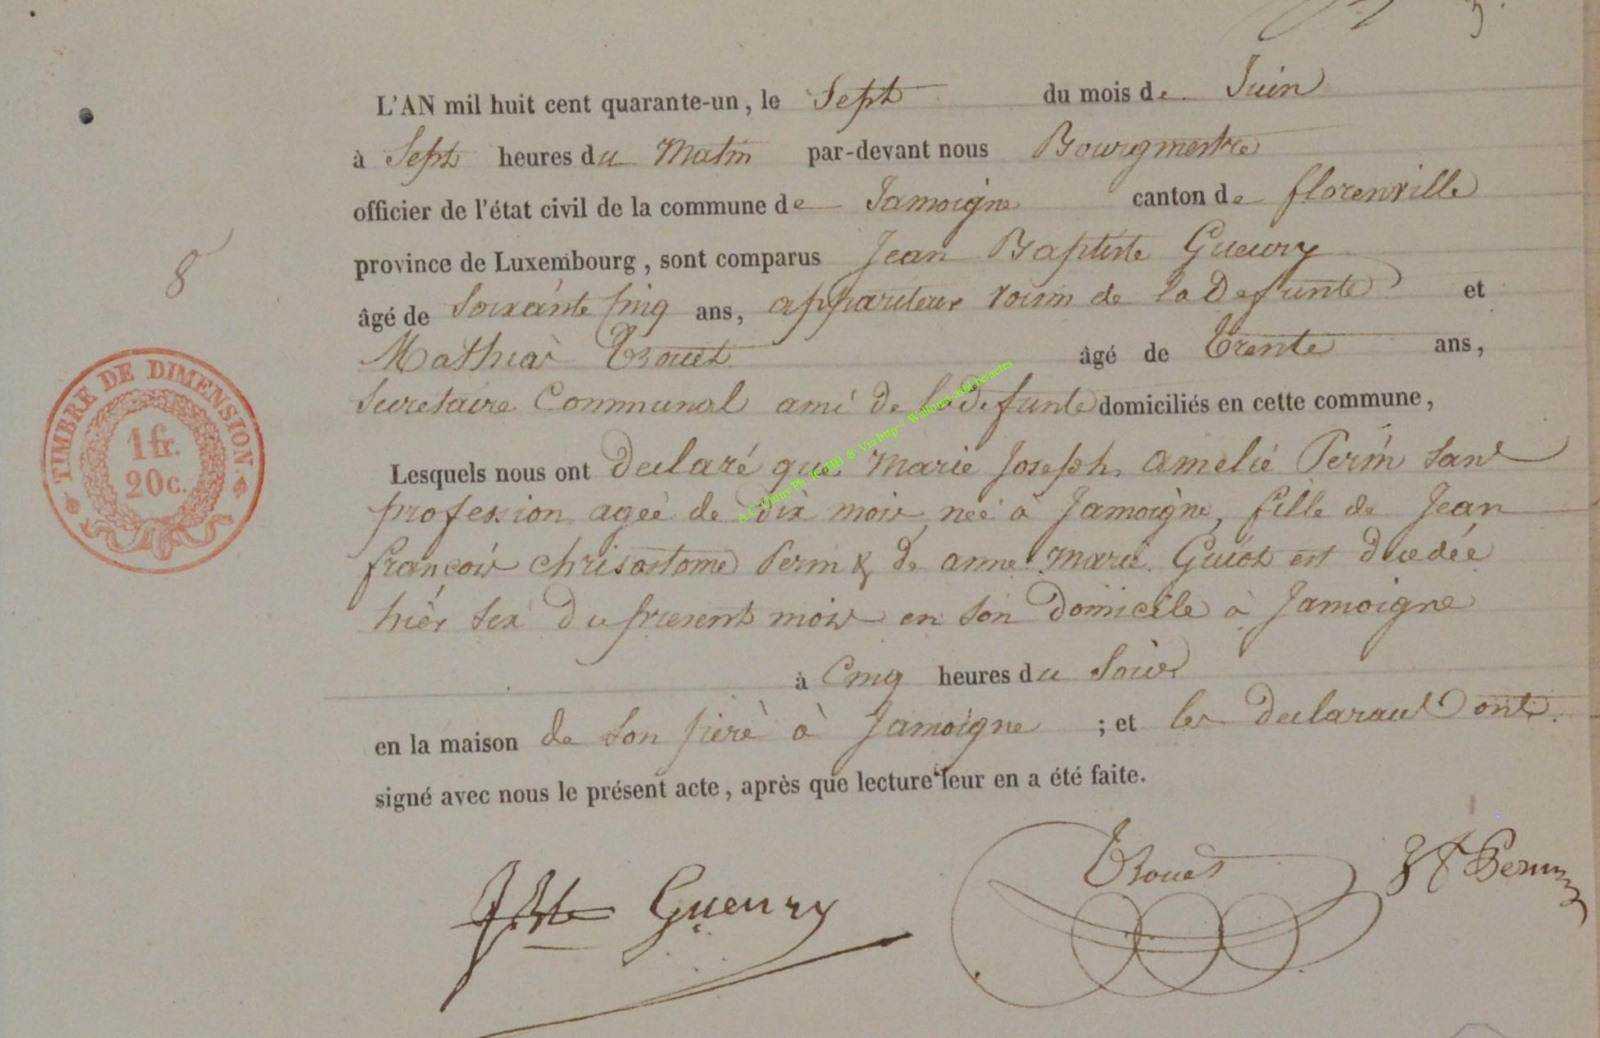 L'AN mil huit cent quarante-un, le Sept du mois de Juin
à Sept heures du Matin par-devant nous Bourgmestre
officier de l'état civil de la commune de Jamoigne canton de florenville
province de Luxembourg, sont comparus Jean Baptiste Gueury
âgé de Soixante Cinq ans, appariteur voisin de la Defunte et
Mathias Trouet âgé de Trente ans,
Secretaire Communal ami de la defunte domiciliés en cette commune,
8
TIMBRE DE DIMENSION.
1 fr.
20 c.
Lesquels nous ont declaré que Marie Joseph Amelie Perin sans
profession agée de dix mois née à Jamoigne, fille de Jean
françois chrisostome Perin & de anne Marie Guiot est decedée
hièr six du present mois en son domicile à Jamoigne
à Cinq heures du Soir
en la maison de son pere à Jamoigne ; et les declarants ont
signé avec nous le présent acte, après que lecture leur en a été faite.
JBte Gueury Trouet Perin